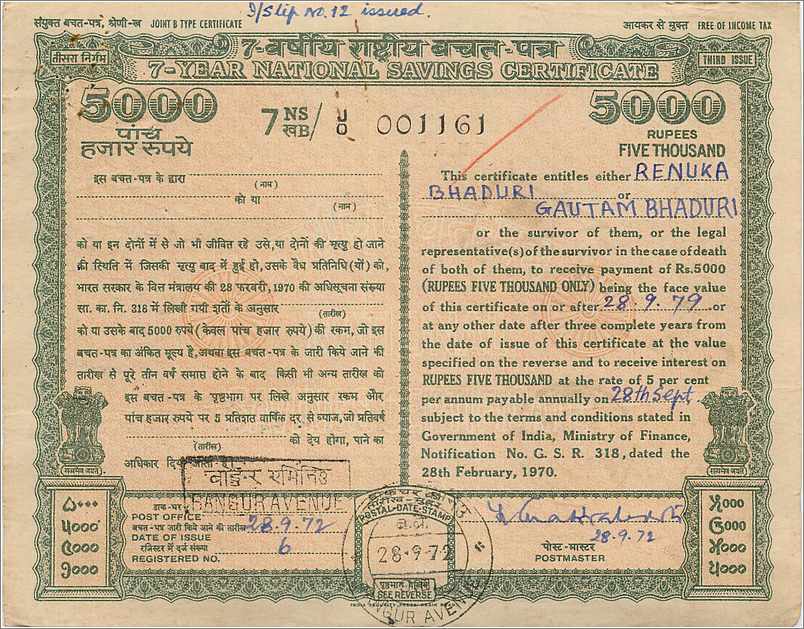 I/Slip No. 12 issued.
संयुक्त बचत-पत्र, श्रेणी-ख JOINT B TYPE CERTIFICATE
आयकर से मुक्त FREE OF INCOME TAX
तीसरा निर्गम
7-वर्षीय राष्ट्रीय बचत-पत्र
7-YEAR NATIONAL SAVINGS CERTIFICATE
THIRD ISSUE
5000
पांच
हजार रुपये
7 NS/खB J/O 001161
5000
RUPEES
FIVE THOUSAND
इस बचत-पत्र के द्वारा
(नाम)
को या
(नाम)
को या इन दोनों में से जो भी जीवित रहे उसे, या दोनों की मृत्यु हो जाने
की स्थिति में जिसकी मृत्यु बाद में हुई हो, उसके वैध प्रतिनिधि (यों) को,
भारत सरकार के वित्त मंत्रालय की 28 फरवरी, 1970 की अधिसूचना संख्या
सा. का. नि. 318 में लिखी गयी शर्तों के अनुसार
(तारीख)
को या उसके बाद 5000 रुपये (केवल पांच हजार रुपये) की रकम, जो इस
बचत-पत्र का अंकित मूल्य है, अथवा इस बचत-पत्र के जारी किये जाने की
तारीख से पूरे तीन वर्ष समाप्त होने के बाद किसी भी अन्य तारीख को
इस बचत-पत्र के पृष्ठभाग पर लिखे अनुसार रकम और
पांच हजार रुपये पर 5 प्रतिशत वार्षिक दर से ब्याज, जो प्रतिवर्ष
को देय होगा, पाने का
(तारीख)
अधिकार दिया जाता है।
This certificate entitles either RENUKA
BHADURI or
GAUTAM BHADURI
or the survivor of them, or the legal
representative(s) of the survivor in the case of death
of both of them, to receive payment of Rs. 5000
(RUPEES FIVE THOUSAND ONLY) being the face value
of this certificate on or after 28.9.79 or
at any other date after three complete years from
the date of issue of this certificate at the value
specified on the reverse and to receive interest on
RUPEES FIVE THOUSAND at the rate of 5 per cent
per annum payable annually on 28th Sept
subject to the terms and conditions stated in
Government of India, Ministry of Finance,
Notification No. G. S. R. 318, dated the
28th February, 1970.
BANGUR AVENUE
डाक-घर
POST OFFICE
बचत-पत्र जारी किये जाने की तारीख 28.9.72
DATE OF ISSUE
रजिस्टर में दर्ज संख्या 6
REGISTERED NO.
तारीख-मुहर
POSTAL-DATE-STAMP
28-9-72
SEE REVERSE
BANGUR AVENUE
28.9.72
पोस्ट-मास्टर
POSTMASTER
५०००